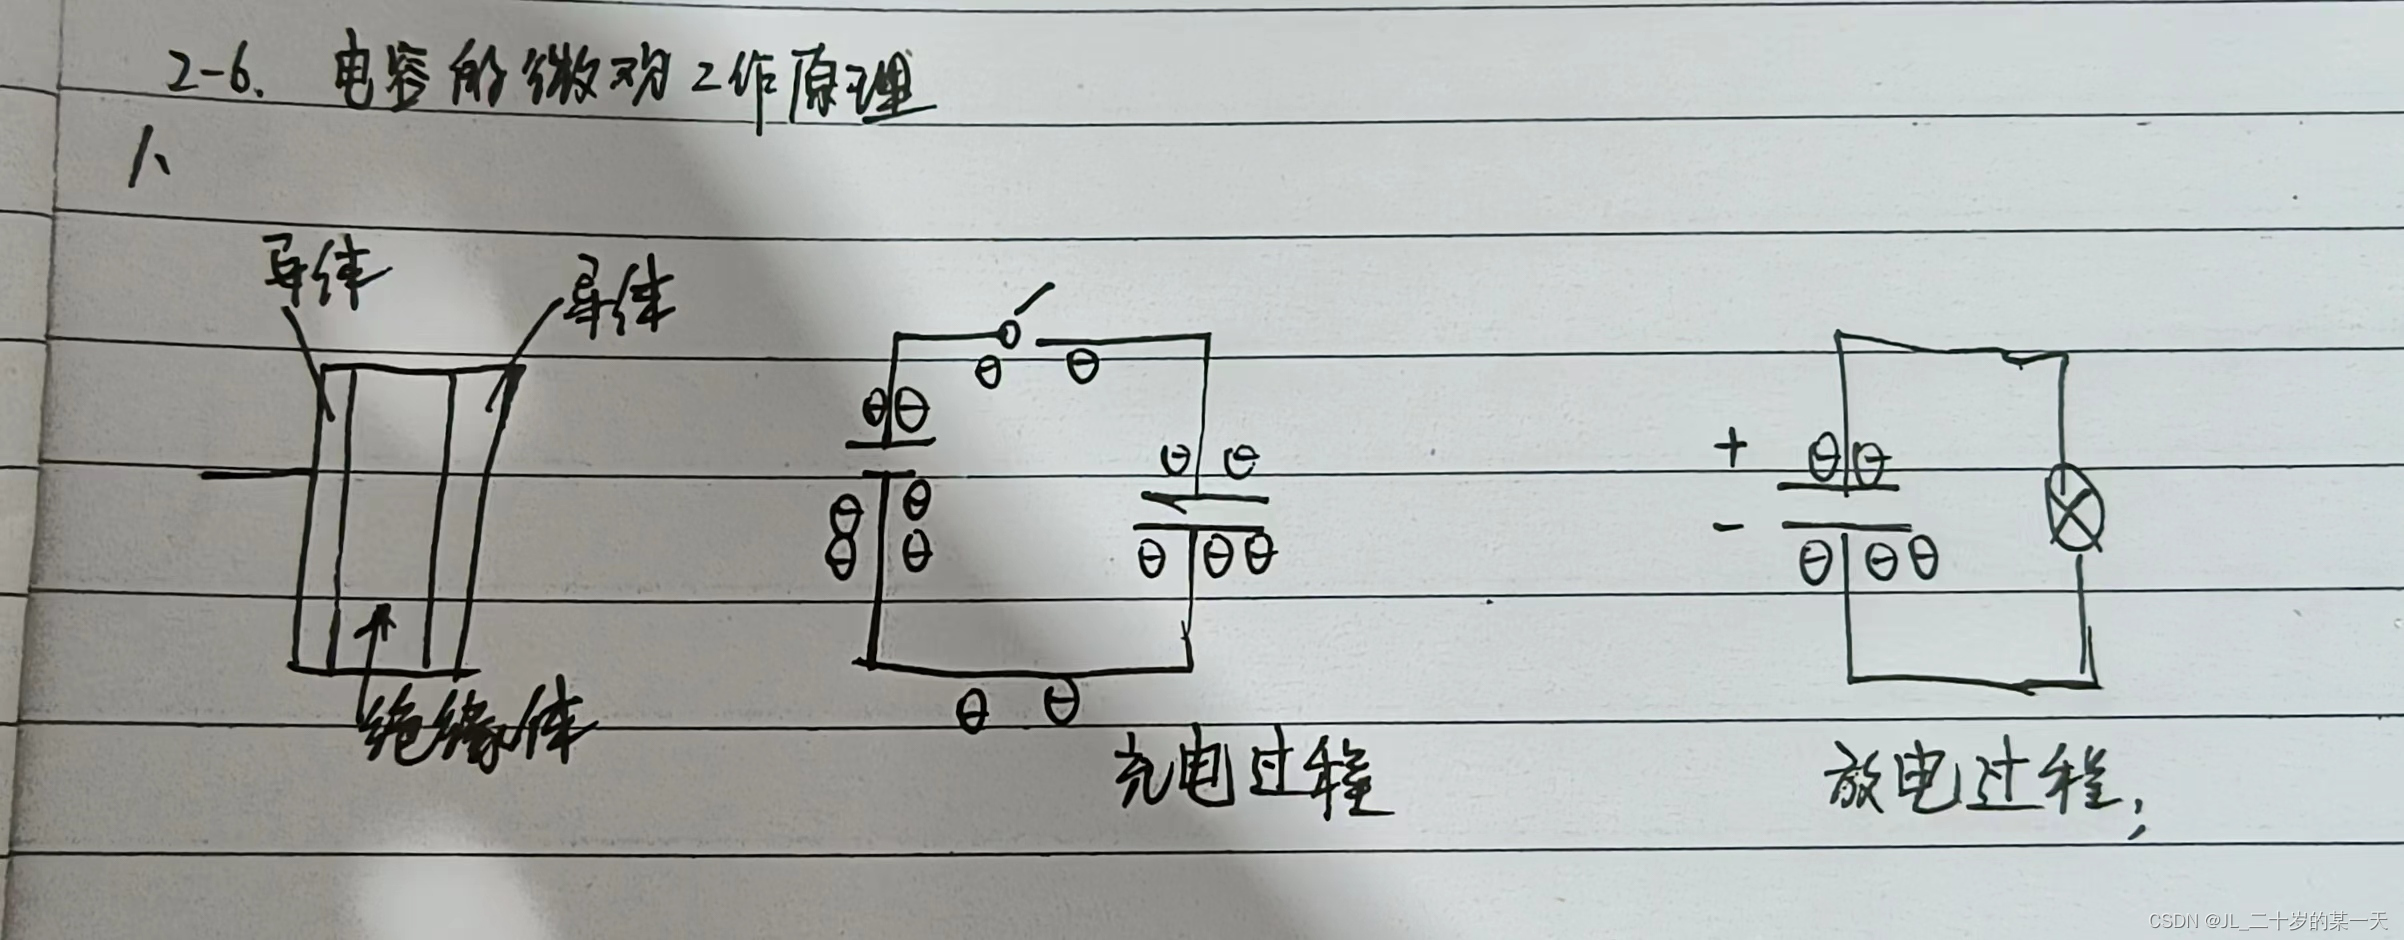 2-6. 电容的微观工作原理
1、
导体
导体
绝缘体
充电过程
+
-
放电过程;
CSDN @JL_二十岁的某一天